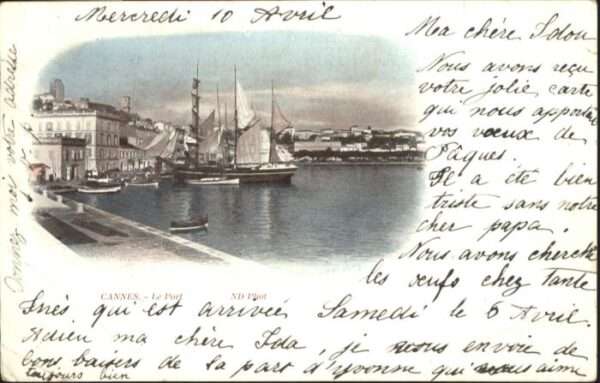 Mercredi 10 Avril
Ma chère Idou
Nous avons reçu
votre jolie carte
qui nous apporte
vos vœux de
Pâques.
Il a été bien
triste sans notre
cher papa.
Nous avons cherché
les œufs chez tante
Inès qui est arrivée Samedi le 6 Avril.
Adieu ma chère Ida, je vous envoie de
bons baisers de la part d'Yvonne qui vous aime
toujours bien
Donnez moi votre adresse
CANNES. - Le Port
ND Phot